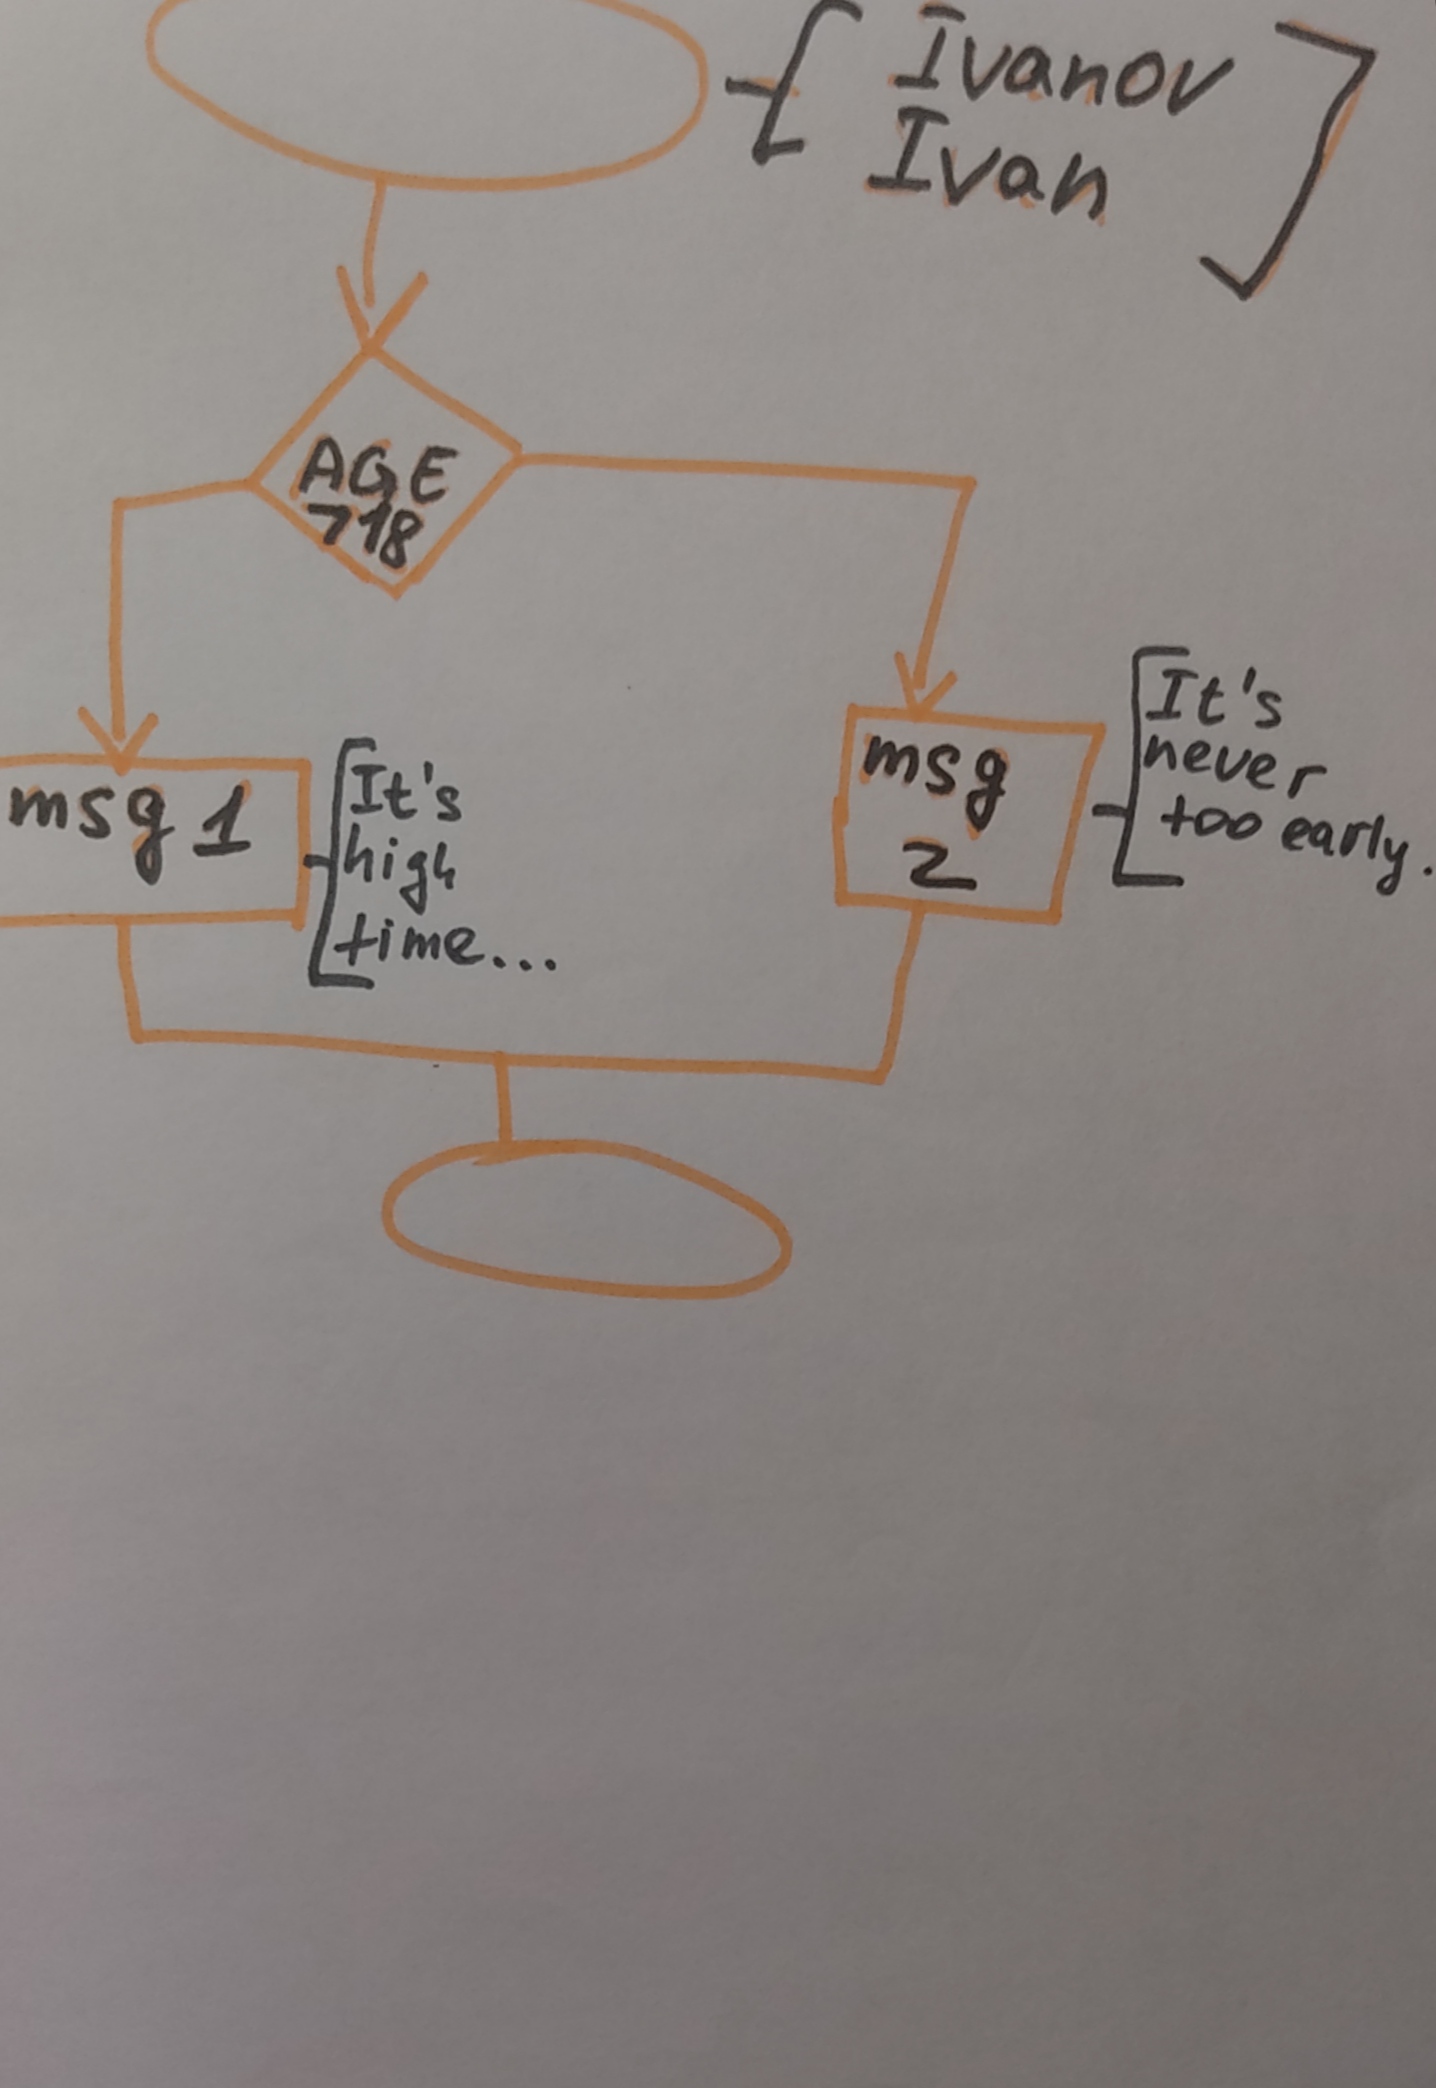 Ivanov
Ivan
AGE
>18
msg 1
It's
high
time...
msg
2
It's
never
too early.